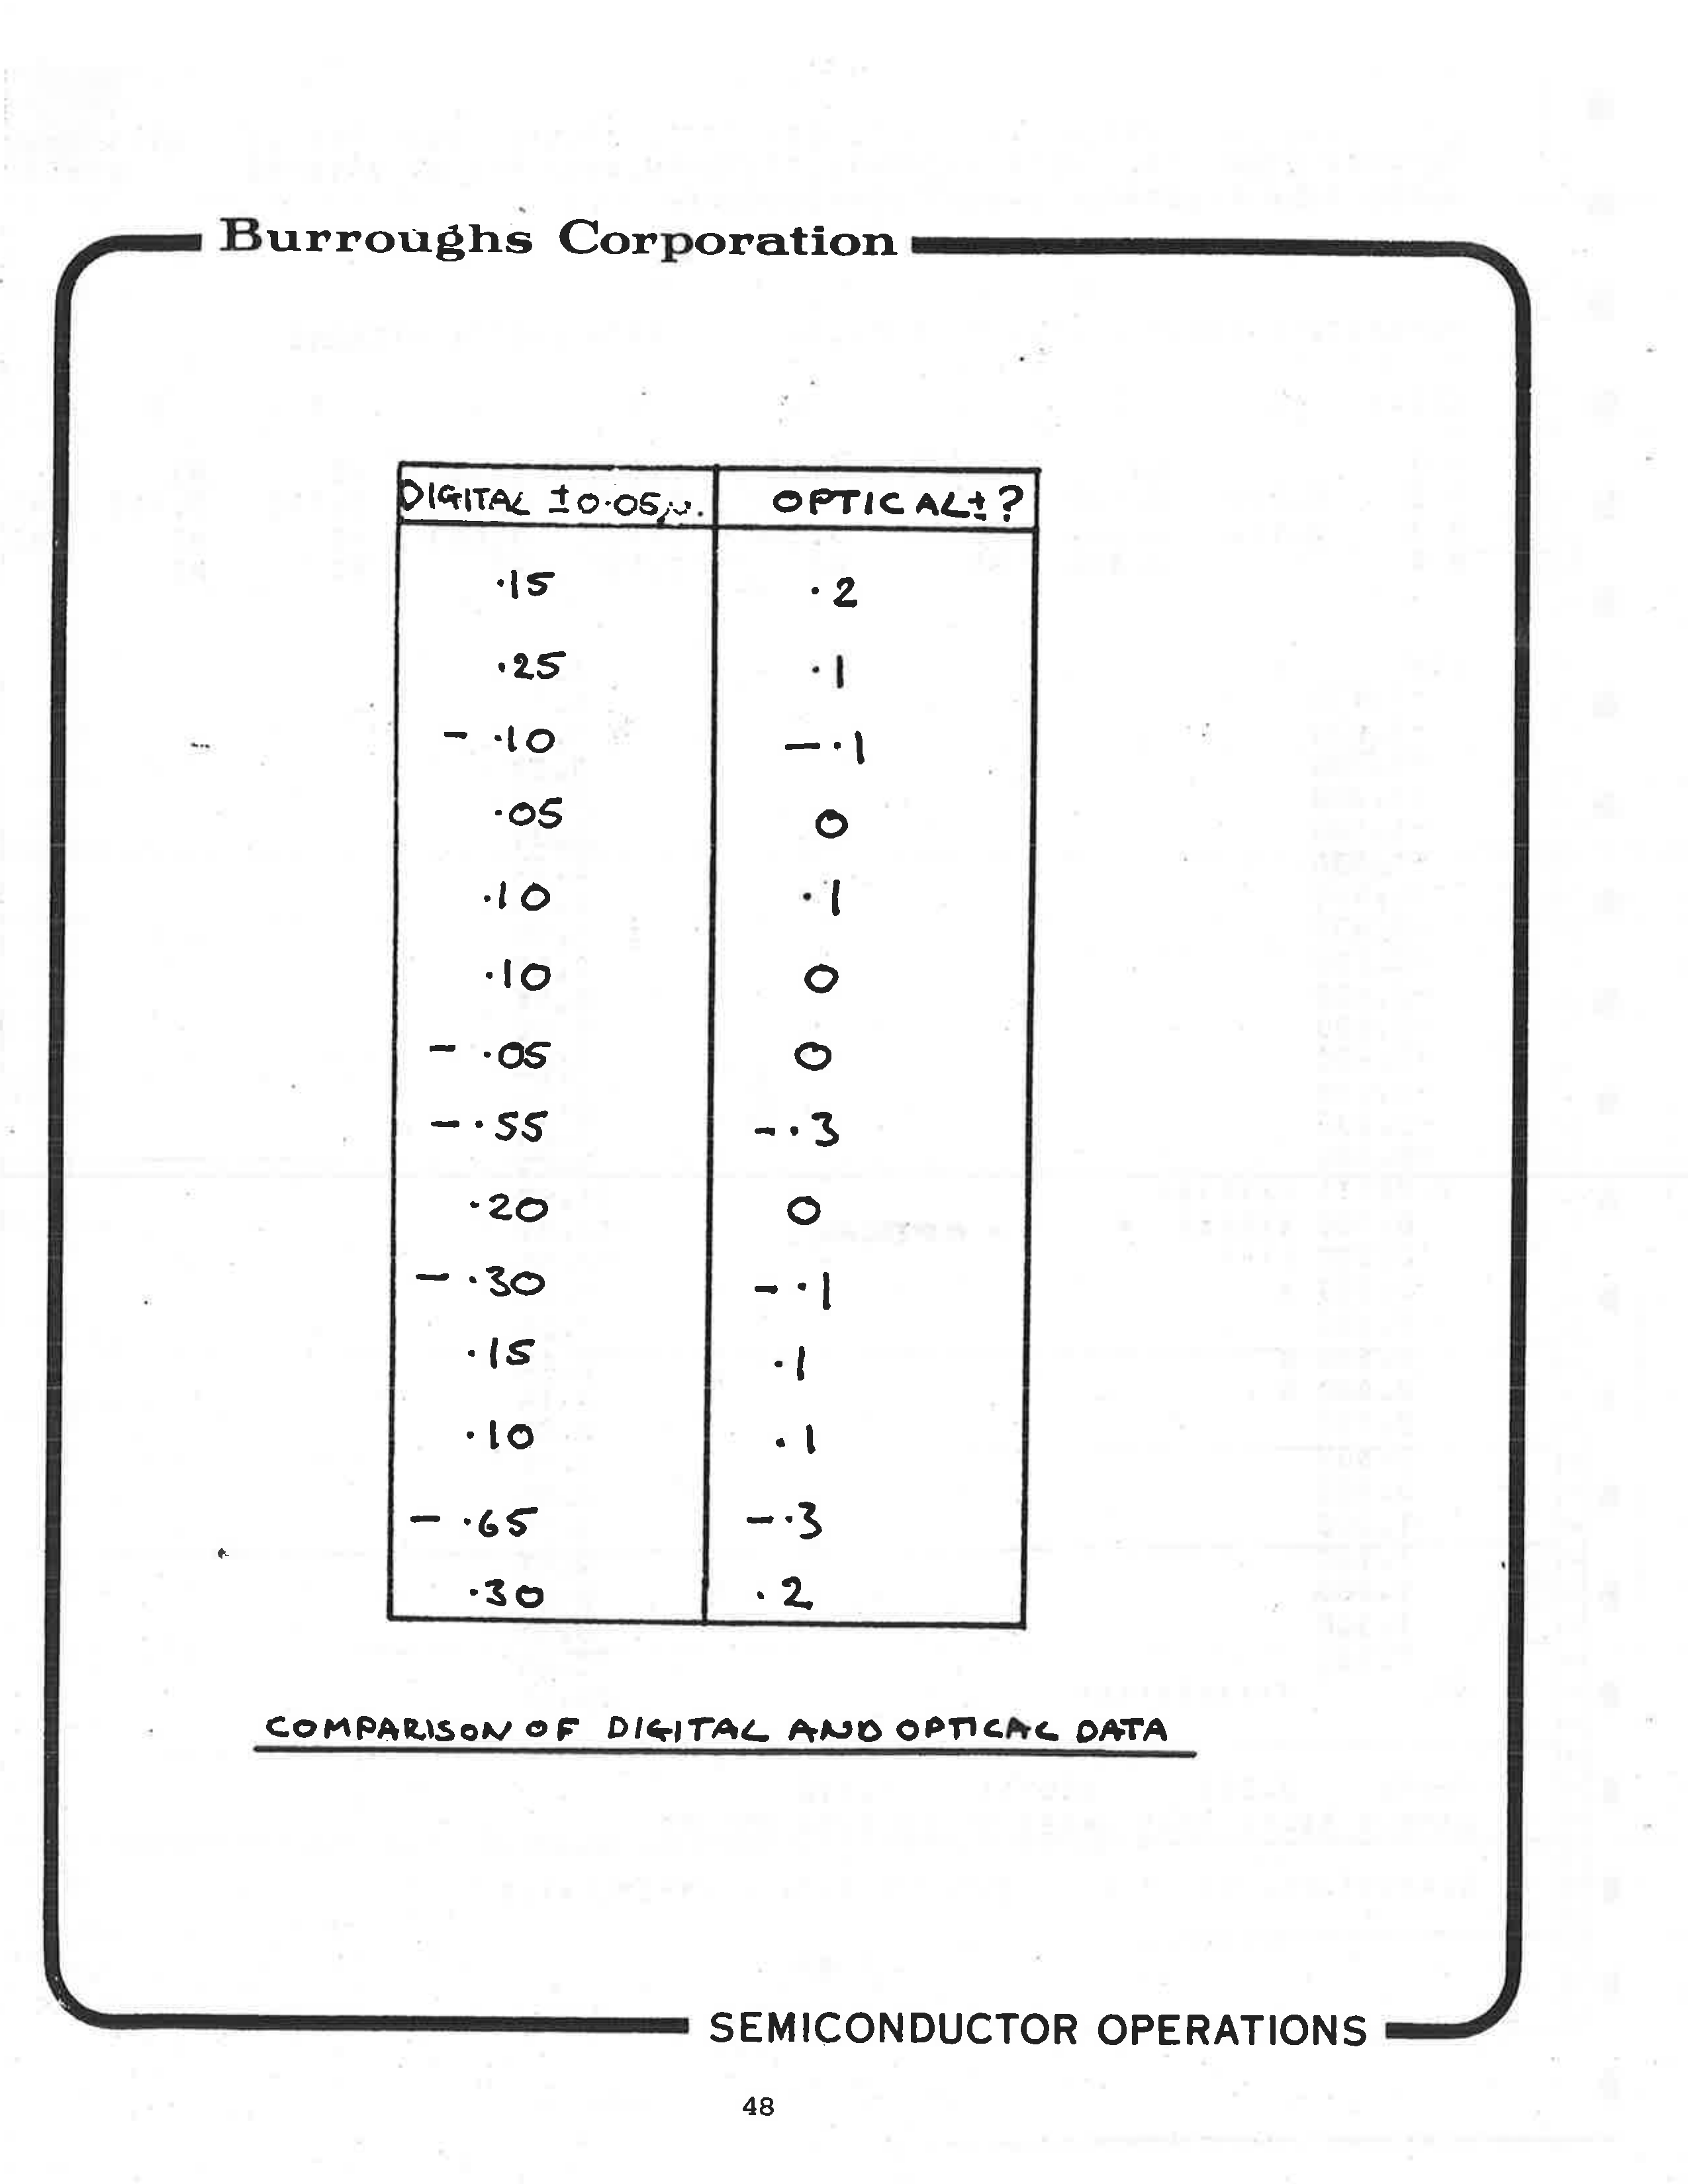 Burroughs Corporation
DIGITAL ±0.05μ. OPTICAL ± ?
.15 .2
.25 .1
- .10 - .1
.05 0
.10 .1
.10 0
- .05 0
- .55 - .3
.20 0
- .30 - .1
.15 .1
.10 .1
- .65 - .3
.30 .2
COMPARISON OF DIGITAL AND OPTICAL DATA
SEMICONDUCTOR OPERATIONS
48